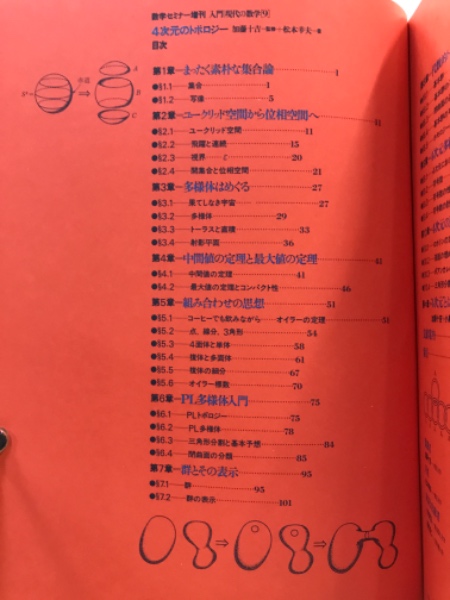 数学セミナー増刊 入門|現代の数学⑨
4次元のトポロジー 加藤十吉=監修 松本幸夫=著
目次
第1章—まったく素朴な集合論 1
●§1.1 集合 1
●§1.2 写像 5
第2章—ユークリッド空間から位相空間へ 11
●§2.1 ユークリッド空間 11
●§2.2 飛躍と連続 15
●§2.3 視界 ε 20
●§2.4 開集合と位相空間 21
第3章—多様体はめぐる 27
●§3.1 果てしなき宇宙 27
●§3.2 多様体 29
●§3.3 トーラスと直積 33
●§3.4 射影平面 36
第4章—中間値の定理と最大値の定理 41
●§4.1 中間値の定理 41
●§4.2 最大値の定理とコンパクト性 46
第5章—組み合わせの思想 51
●§5.1 コーヒーでも飲みながら オイラーの定理 51
●§5.2 点, 線分, 3角形 54
●§5.3 4面体と単体 58
●§5.4 複体と多面体 61
●§5.5 複体の細分 67
●§5.6 オイラー標数 70
第6章—PL多様体入門 75
●§6.1 PLトポロジー 75
●§6.2 PL多様体 78
●§6.3 三角形分割と基本予想 84
●§6.4 閉曲面の分類 85
第7章—群とその表示 95
●§7.1 群 95
●§7.2 群の表示 101
S²
赤道
A
B
C